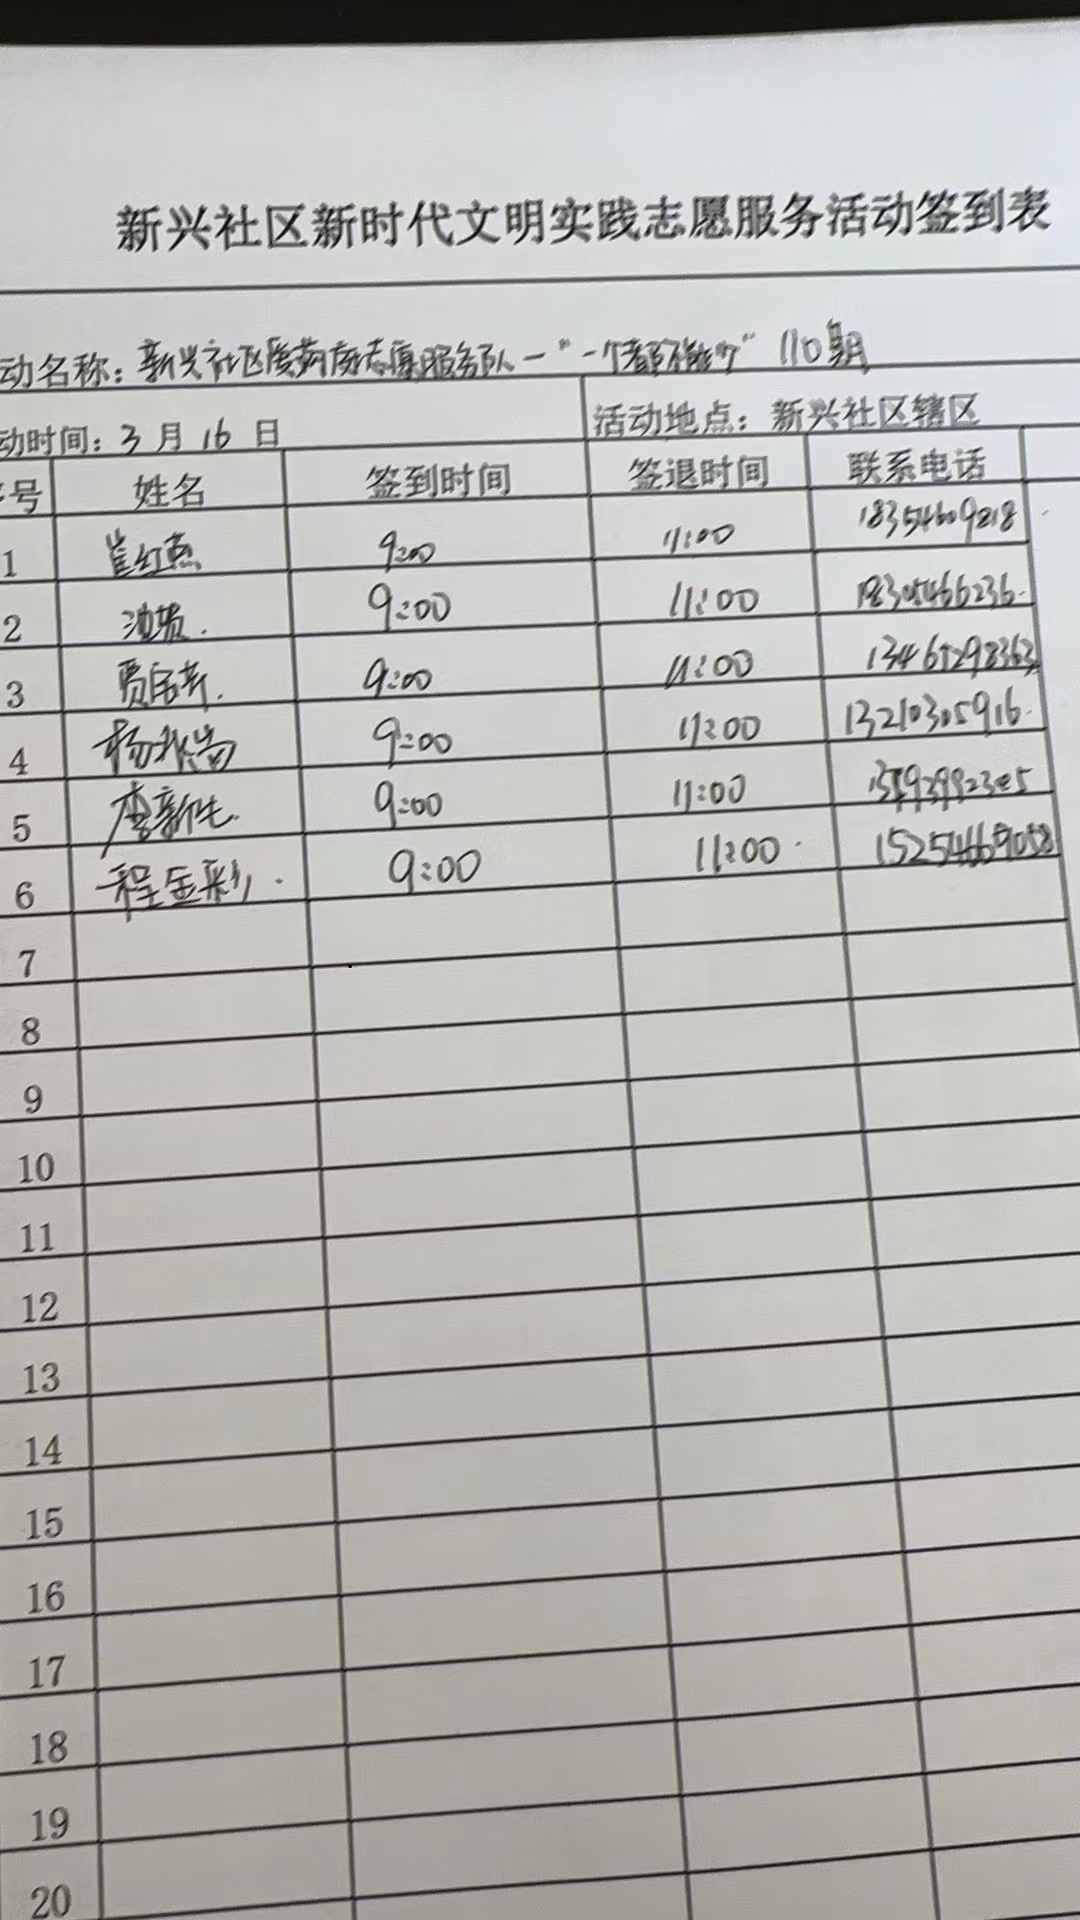 新兴社区新时代文明实践志愿服务活动签到表
动名称：新兴社区 志愿服务队一"一个都不能少" 110期
动时间：3月16日 活动地点：新兴社区辖区
序号 姓名 签到时间 签退时间 联系电话
1 崔红燕 9:00 11:00 18354609218
2 9:00 11:00 18305466236
3 9:00 11:00 13465298363
4 9:00 11:00 13210305916
5 李新生 9:00 11:00
6 程金彩 9:00 11:00 15254669058
7
8
9
10
11
12
13
14
15
16
17
18
19
20